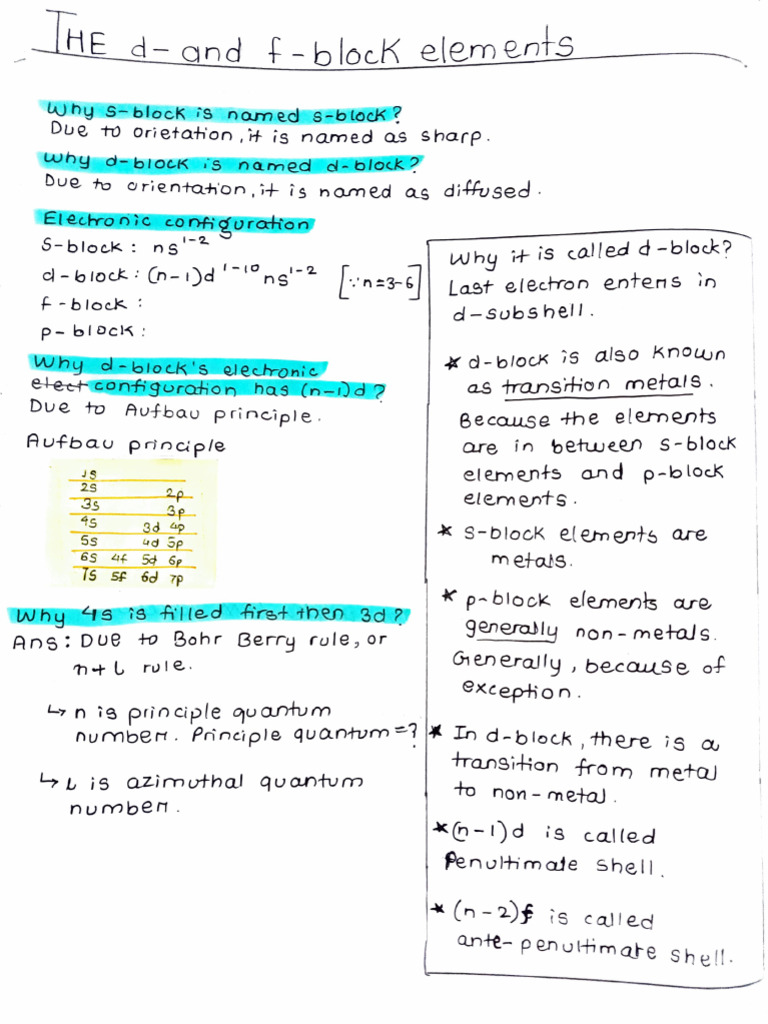 THE d- and f-block elements
Why s-block is named s-block?
Due to orietation, it is named as sharp.
Why d-block is named d-block?
Due to orientation, it is named as diffused.
Electronic configuration
S-block : ns¹⁻²
d-block : (n-1)d¹⁻¹⁰ ns¹⁻² [∵n=3-6]
f-block :
p-block :
Why d-block's electronic
elect configuration has (n-1)d?
Due to Aufbau principle.
Aufbau principle
1s
2s 2p
3s 3p
4s 3d 4p
5s 4d 5p
6s 4f 5d 6p
7s 5f 6d 7p
Why 4s is filled first then 3d?
Ans : Due to Bohr Berry rule, or
n+l rule.
↳ n is principle quantum
number. Principle quantum=?
↳ l is azimuthal quantum
number.
Why it is called d-block?
Last electron enters in
d-subshell.
* d-block is also known
as transition metals.
Because the elements
are in between s-block
elements and p-block
elements.
* s-block elements are
metals.
* p-block elements are
generally non-metals.
Generally, because of
exception.
* In d-block, there is a
transition from metal
to non-metal.
* (n-1)d is called
Penultimate shell.
* (n-2)f is called
ante-penultimate shell.